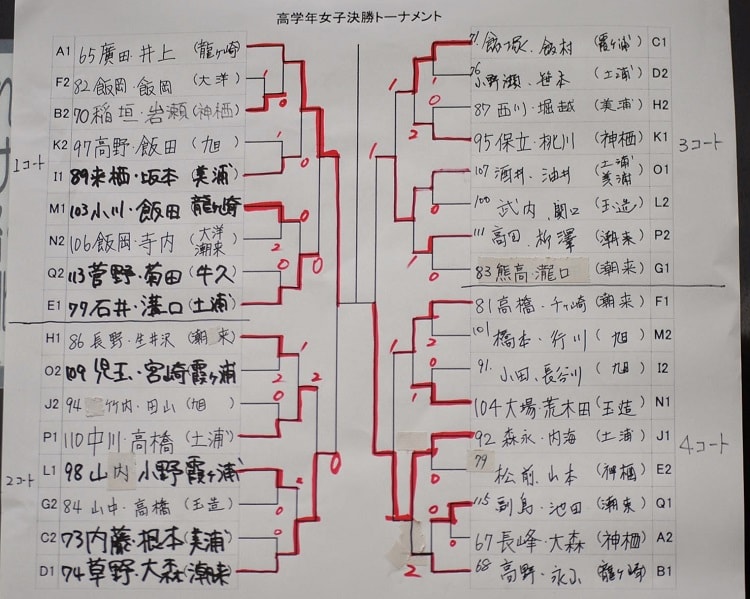 高学年女子決勝トーナメント
A1 65 廣田・井上 (龍ヶ崎)
F2 82 飯岡・飯岡 (大洋)
B2 70 稲垣・岩瀬 (神栖)
K2 97 高野・飯田 (旭)
I1 89 来栖・坂本 (美浦)
M1 103 小川・飯田 龍ヶ崎
N2 106 飯岡・寺内 (大洋 潮来)
Q2 113 菅野・菊田 (牛久)
E1 77 石井・溝口 (土浦)
H1 86 長野・生井沢 (潮来)
O2 109 児玉・宮崎 霞ヶ浦
J2 94 竹内・田山 (旭)
P1 110 中川・高橋 (土浦)
L1 98 山内 小野 霞ヶ浦
G2 84 山中・高橋 (玉造)
C2 73 内藤・根本 (美浦)
D1 74 草野・大森 (潮来)
1コート
2コート
71 飯塚・飯村 (霞ヶ浦) C1
76 小野瀬・笹本 (土浦) D2
87 西川・堀越 (美浦) H2
95 保立・桃川 (神栖) K1
107 酒井・油井 (土浦 美浦) O1
100 武内・関口 (玉造) L2
111 高田・柳澤 (潮来) P2
83 熊高・瀧口 (潮来) G1
81 高橋・千ヶ崎 (潮来) F1
101 橋本・行川 (旭) M2
91 小田・長谷川 (旭) I2
104 大場・荒木田 (玉造) N1
92 森永・内海 (土浦) J1
79 松前・山本 (神栖) E2
115 副島・池田 (潮来) Q1
67 長峰・大森 (神栖) A2
68 高野・永小 (龍ヶ崎) B1
3コート
4コート